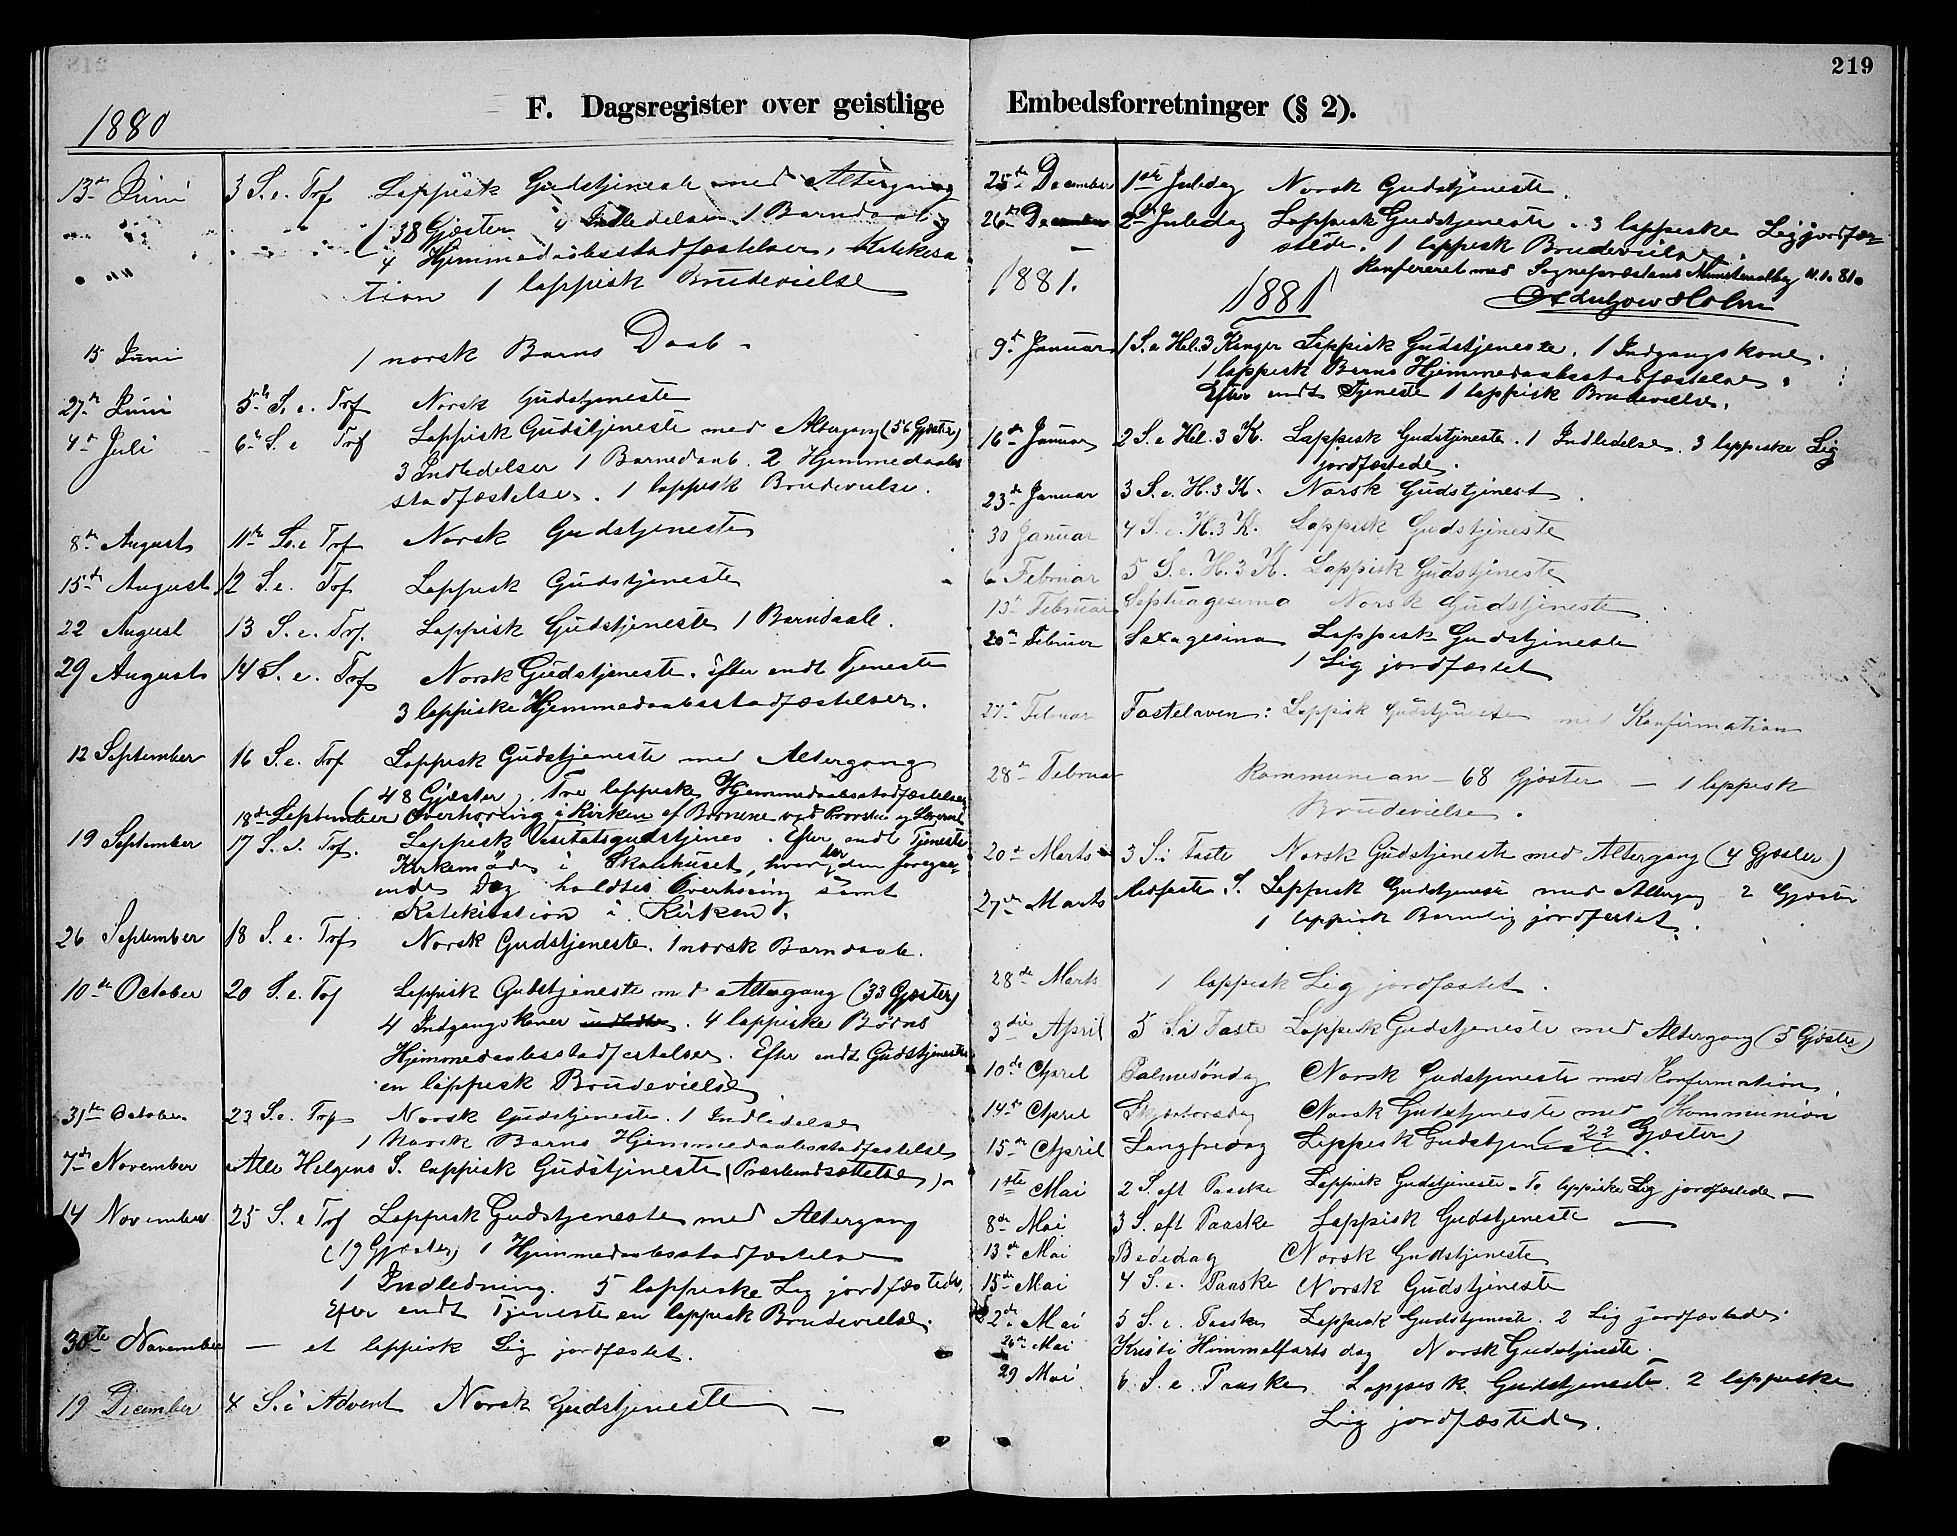 219
F. Dagsregister over geistlige Embedsforretninger (§ 2).
1880
13de Juni 3 S. e. Trf Lappisk Gudstjeneste med Altergang
(38 Gjæster 4 Indledelser 1 Barndaab
4 Hjemmedaabsstadfæstelser, Katekisa
tion 1 lappisk Brudevielse
15 Juni 1 norsk Barns Daab -
27de Juni 5te S. e. Trf Norsk Gudstjeneste
4de Juli 6te S. e Trf Lappisk Gudstjeneste med Altergang (56 Gjæster)
3 Indledelser 1 Barnedaab. 2 Hjemmedaabs
stadfæstelser. 1 lappisk Brudevielse.
8de August 11te S. e Trf Norsk Gudstjeneste
15de August 12 S. e. Trf Lappisk Gudstjeneste
22 August 13 S. e. Trf. Lappisk Gudstjeneste 1 Barndaab.
29 August 14 S. e. Trf Norsk Gudstjeneste. Efter endt Tjeneste
3 lappiske Hjemmedaabsstadfæstelser.
12 September 16 S. e. Trf Lappisk Gudstjeneste med Altergang
(48 Gjæster). Tre lappiske Hjemmedaabsstadfæstelser
18de September Overhøring i Kirken af Børnene ved Provsten og
19 September 17 S. e. Trf. Lappisk Visitatsgudstjenes. Efter endt Tjeneste
Kirkemøde i Skolehuset, hvor der den foregaa-
ende Dag holdtes Overhøring samt
Katekisation i Kirken.
26 September 18 S. e. Trf Norsk Gudstjeneste. 1 norsk Barndaab.
10de October 20 S. e. Trf Lappisk Gudstjeneste med Altergang (33 Gjæster)
4 Indgangskoner . 4 lappiske Børns
Hjemmedaabsstadfæstelser. Efter endt Gudstjeneste
en lappisk Brudevielse
31te October 23 S. e. Trf Norsk Gudstjeneste. 1 Indledelse
1 Norsk Barns Hjemmedaabsstadfæstelse
7de November Alle Helgens S. lappisk Gudstjeneste (Præsteindsættelse) -
14 November 25 S. e Trf Lappisk Gudstjeneste med Altergang
(19 Gjæster) 1 Hjemmedaabsstadfæstelse
1 Indledning. 5 lappiske Lig jordfæstede.
Efter endt Tjeneste en lappisk Brudevielse.
30te November — et lappisk Lig jordfæstet.
19 December 4 S. i Advent Norsk Gudstjeneste —
25de December 1ste Juledag Norsk Gudstjeneste.
26de December 2den Juledag Lappisk Gudstjeneste. 3 lappiske Lig jordfæ-
stede. 1 lappisk Brudevielse.
Konfereret med Sognepræstens Ministerialbog 11.1.81.
1881.
1881
9de Januar 1 S. e Hel. 3 Konger Lappisk Gudstjeneste. 1 Indgangskone.
1 lappisk Barns Hjemmedaabsstadfæstelse.
Efter endt Tjeneste 1 lappisk Brudevielse.
16de Januar 2 S. e Hel. 3 K. Lappisk Gudstjeneste. 1 Indledelse. 3 lappiske Lig
jordfæstede.
23de Januar 3 S. e. H. 3 K. Norsk Gudstjenest
30 Januar 4 S. e. H. 3 K. Lappisk Gudstjeneste
6 Februar 5 S. e. H. 3 K. Lappisk Gudstjeneste
13de Februar Septuagesima Norsk Gudstjeneste
20de Februar Sexagesima Lappisk Gudstjeneste
1 Lig jordfæstet
27de Februar Fastelaven: Lappisk Gudstjeneste med Konfirmation
28de Februar Kommunion - 68 Gjæster — 1 lappisk
Brudevielse.
20de Marts 3 S. i Faste Norsk Gudstjeneste med Altergang (4 Gjæster)
27de Marts Midfaste S. Lappisk Gudstjeneste med Altergang 2 Gjæster
1 lappisk Barnelig jordfæstet.
28de Marts 1 lappisk Lig jordfæstet.
3die April 5 S. i Faste Lappisk Gudstjeneste med Altergang (5 Gjæster)
10de April Palmesøndag Norsk Gudstjeneste med Konfirmation.
14de April Skjærtorsdag Norsk Gudstjeneste med Kommunion
(22 Gjæster)
15de April Langfredag Lappisk Gudstjeneste.
1ste Mai 2 S. eft Paaske Lappisk Gudstjeneste. To lappiske Lig jordfæstede —
8de Mai 3 S. eft Paaske Lappisk Gudstjeneste —
13de Mai Bededag Norsk Gudstjeneste
15de Mai 4 S. e. Paaske Norsk Gudstjeneste
22de Mai 5 S. e. Paaske Lappisk Gudstjeneste. 2 Lig jordfæstede.
26de Mai Kristi Himmelfartsdag Norsk Gudstjeneste.
29 Mai 6 S. e. Paaske Lappisk Gudstjeneste. 2 lappiske
Lig jordfæstede.